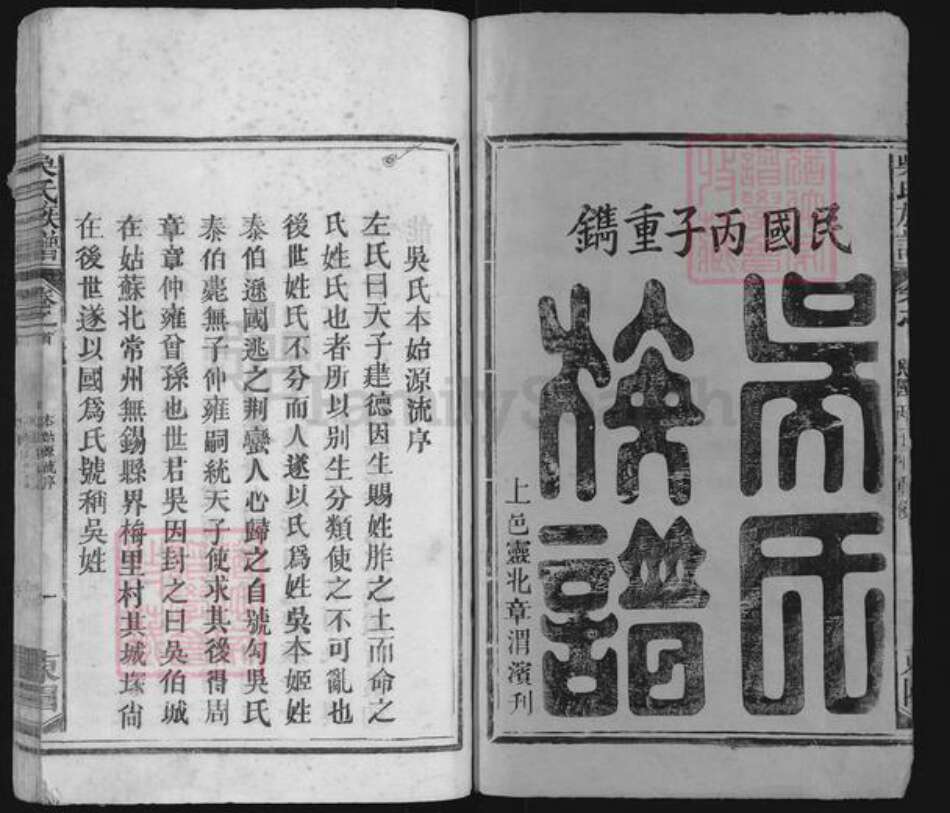 民國丙子重鐫
吳氏
族譜
上邑靈北章渭濱刊
吳氏本始源流序
左氏曰天子建德因生賜姓胙之土而命之
氏姓氏也者所以别生分類使之不可亂也
後世姓氏不分而人遂以氏爲姓吳本姬姓
泰伯遜國逃之荆蠻人心歸之自號勾吳氏
泰伯薨無子仲雍嗣統天子使求其後得周
章章仲雍曾孫也世君吳因封之曰吳伯城
在姑蘇北常州無錫縣界梅里村其城塚尙
在後世遂以國爲氏號稱吳姓
吳氏族譜
卷之首
本始源流序
一
FamilySearch